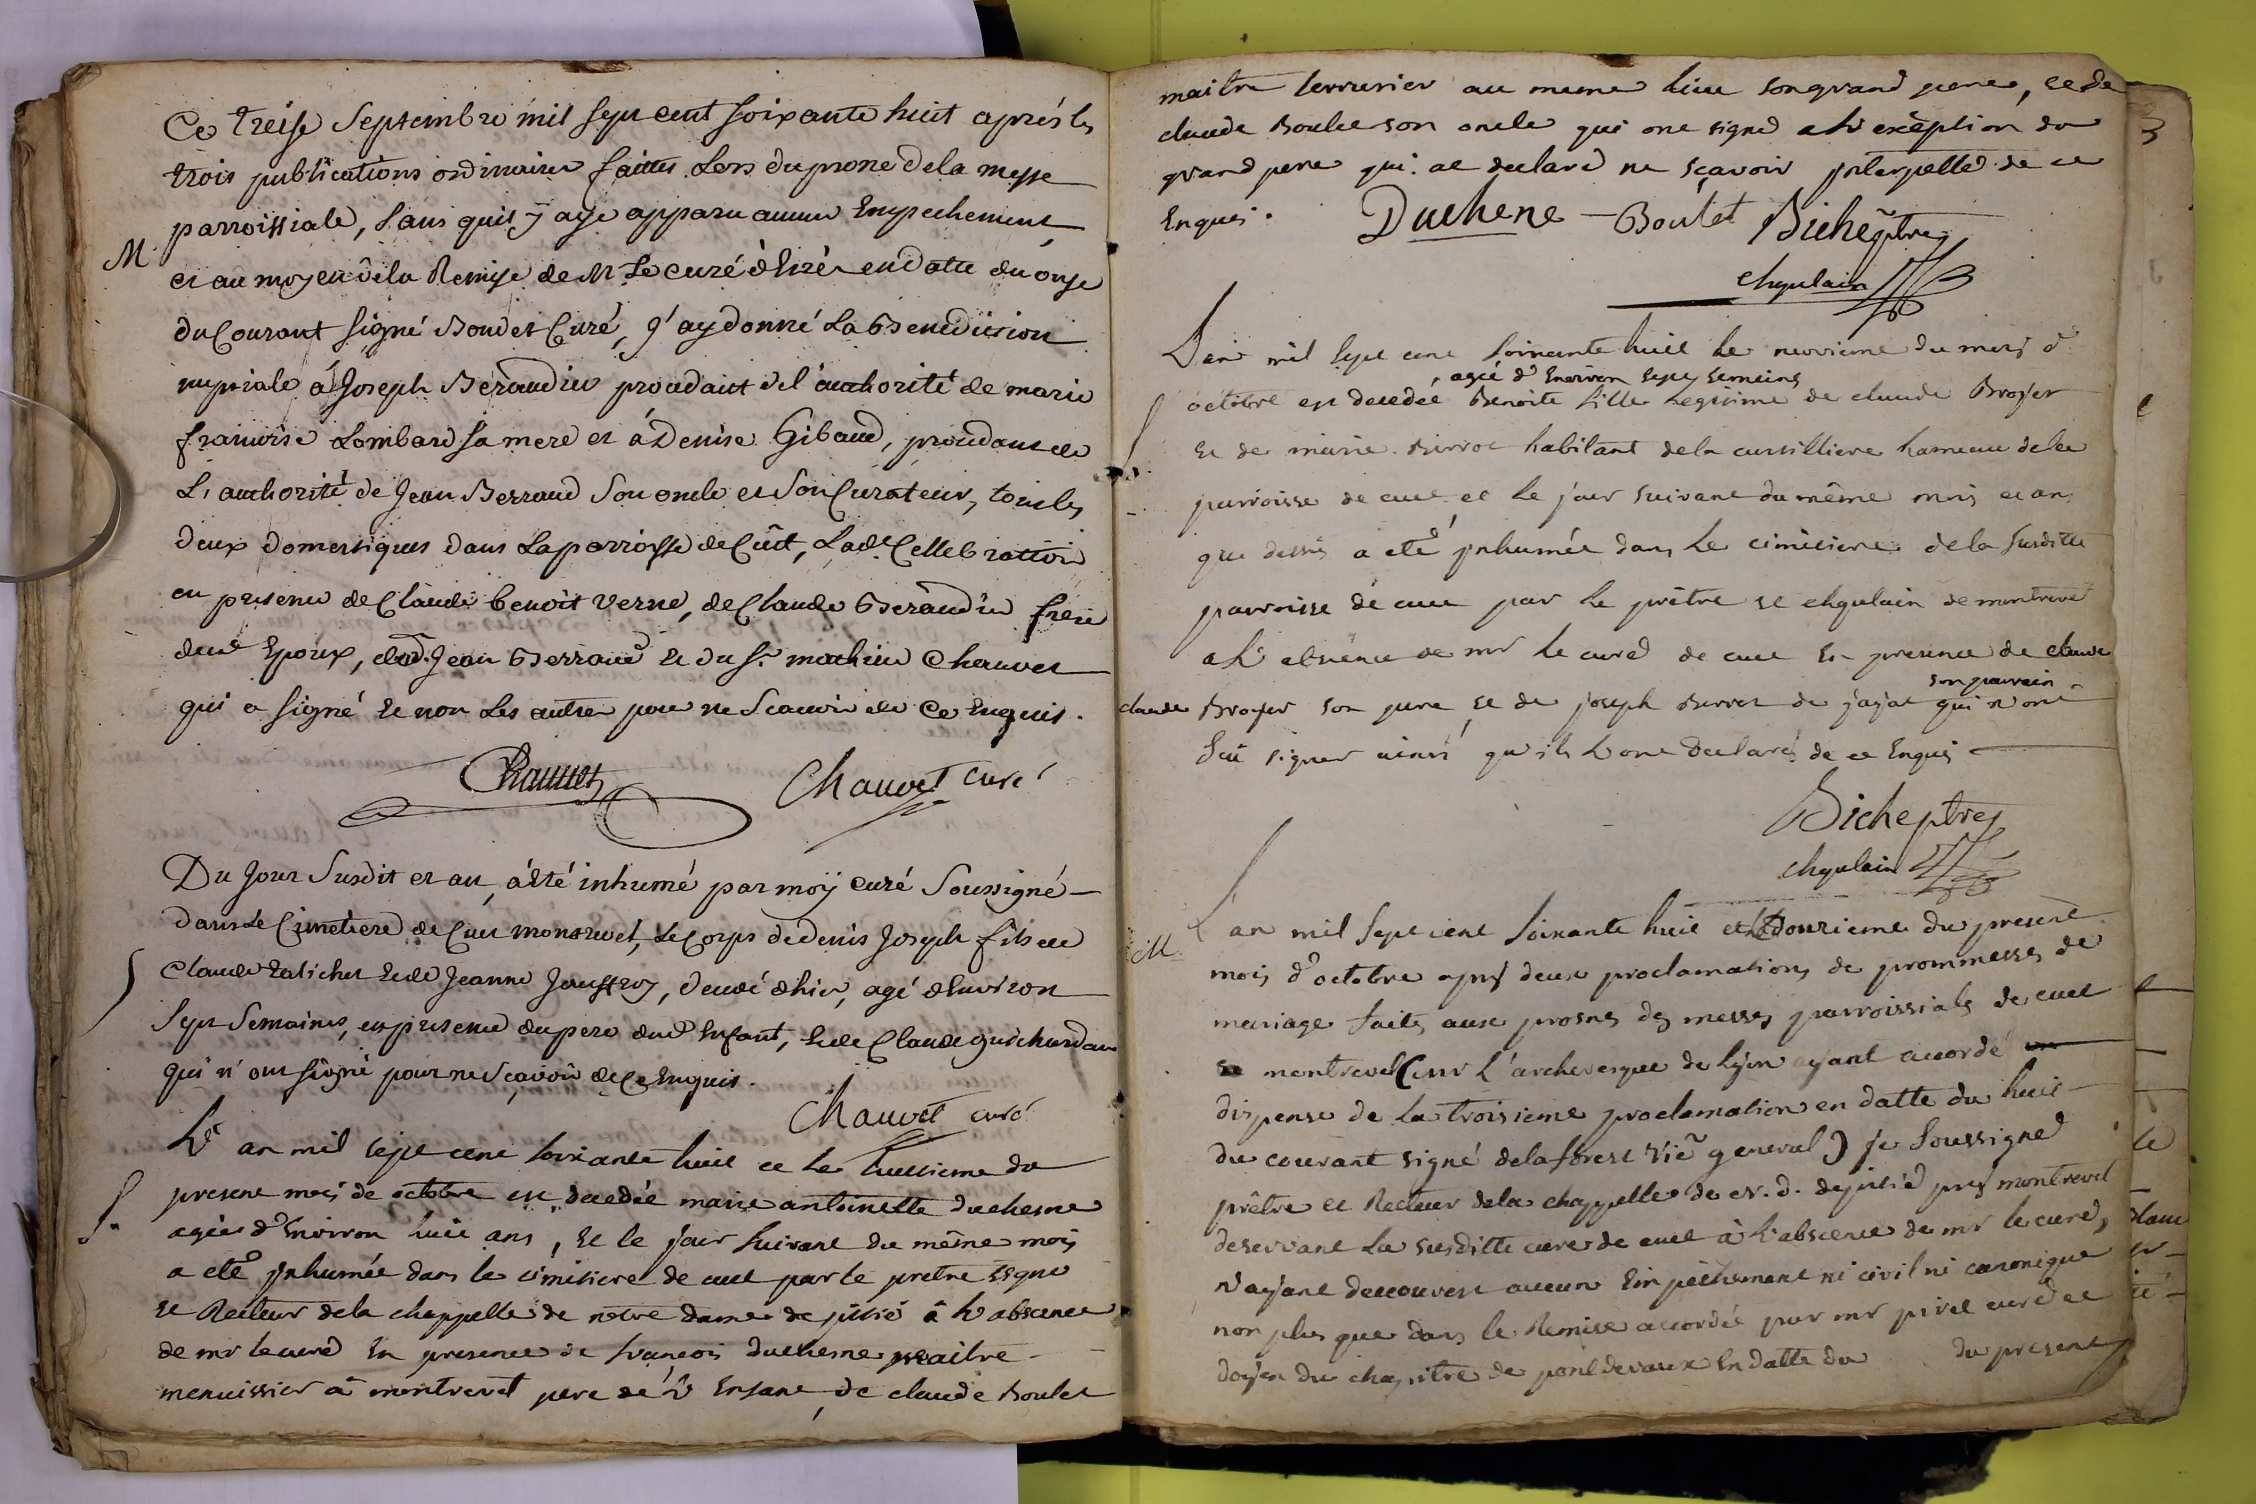 Ce treise Septembre mil sept cent soixante huit aprés les
trois publications ordinaires faittes Lors du prone de la messe
parroissiale, sans quil y aye apparu aucun Empechement
M
et au moyen de la Remise de Mr Le curé d'hizé en datte du onze
du Courant signé Boudet Curé, j'ay donné La Benediction
nuptiale à Joseph Beraudin procedant de l'authorité de marie
francoise Lombard sa mere et à Denise Gibaud, procedant de
L'authorité de Jean Berraud Son oncle et Son Curateur, tous les
deux domestiques dans La parroisse de Cuët, Lade Cellebration
en presence de Claude benoit Verne, de Claude Beraudin frere
dud Epoux, dud. Jean Berraud et du Sr mathieu Chauvet
qui a signé et non Les autres pour ne Scavoir de Ce Enquis.
Chauvet Chauvet curé
Du Jour Susdit et an, a été inhumé par moÿ curé Soussigné
dans Le Cimetiere de Cuet montrevel, Le Corps de denis Joseph fils de
S
Claude et de Jeanne Jouffroy, decedé d'hier, agé d'Environ
Sept Semaines, en presence du pere dud Enfant, et de Claude guichardan
qui n'ont signé pour ne Sçavoir de Ce Enquis.
Chauvet curé
L'an mil sept cent soixante huit et le huitieme du
S.
present mois de octobre est decedée marie antoinette duchesne
agée d'Environ huit ans, et le jour suivant du même mois
a eté inhumée dans le cimitiere de cuet par le pretre signé
et Recteur de la chappelle de nôtre dame de pitié à L'absence
de mr le curé En presence de francois duchesne maitre
menuissier à montrevel pere de l'Enfant, de claude Boulet
maitre serrurier au meme lieu son grand pere, et de
claude Boulet son oncle qui ont signé à L'exception du
grand pere qui a declaré ne sçavoir interpellé de ce
Enquis. Duchene - Boulet Bicheptre
chapelain
L'an mil sept cent soixante huit le neuvieme du mois d'
, agée d'Environ sept semeines
octobre est decedée Benoite fille Legitime de claude Broyer
S.
et de marie Birrot habitant de la cursilliere hameau de la
parroisse de cuet et le jour suivant du même mois et an
que dessus a eté inhumée dans le cimitiere de la susditte
parroisse de cuet par le prêtre et chapelain de montrevel
a L'absence de mr le curé de cuet En presence de claude
son parrein
claude Broyer son pere et de joseph Burret de jayat qui n'ont
sçu signer ainsi qu'ils L'ont declarés de ce Enquis
Bicheptre
chapelain
M.
L'an mil sept cent soixante huit et le douzieme du present
mois d'octobre aprs deux proclamations de prommesses de
mariage faites aux prosnes des messes parroissiales de cuet
montrevel (mr L'archevesque de Lyon ayant accordé
dispense de la troisieme proclamation en datte du huit
du courant signé delaforest Vic̃ general) je soussigné
prêtre et Recteur de la chappelle de n. d. de pitié prés montrevel
deservant La susditte cure de cuet à L'absence de mr le curé,
n'ayant decouvert aucun Empêchement ni civil ni canonique
non plus que dans le Remise accordée par mr pivet curé et
doyen du chapitre de pontdevaux En datte du du present